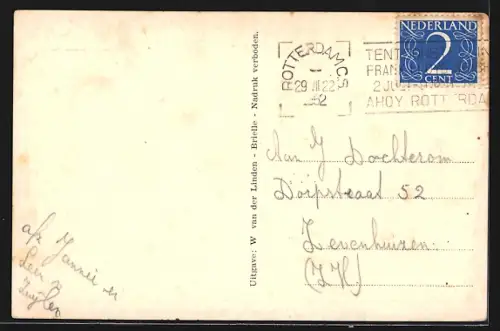 NEDERLAND
2
CENT
ROTTERDAM C.S.
29 22
TENT
FRAN
2 JU
AHOY ROTTERDA
Uitgave: W van der Linden - Brielle - Nadruk verboden.
Aan J Dochterom
Dorpstraat 52
Zevenhuizen
(Z.H)
afz Jannie en
Leen